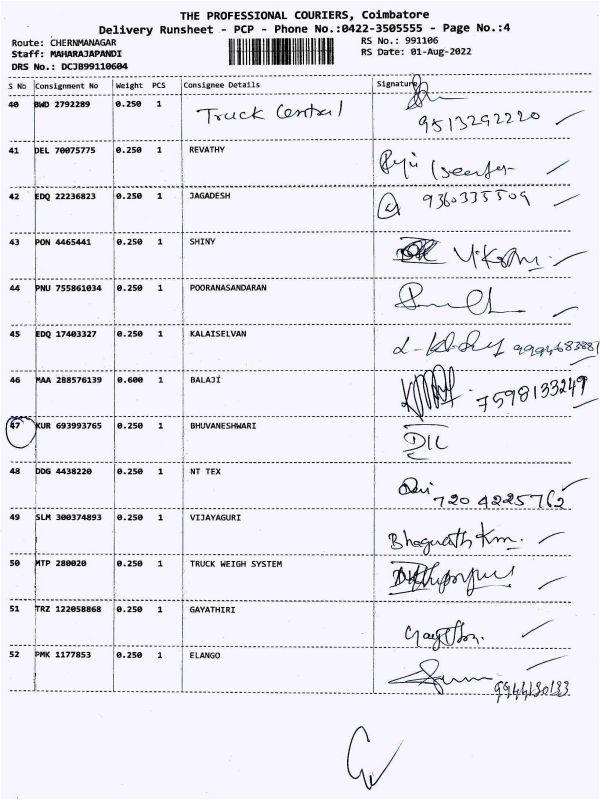 THE PROFESSIONAL COURIERS, Coimbatore
Delivery Runsheet - PCP - Phone No.:0422-3505555 - Page No.:4
Route: CHERNMANAGAR RS No.: 991106
Staff: MAHARAJAPANDI RS Date: 01-Aug-2022
DRS No.: DCJB99110604
S No Consignment No Weight PCS Consignee Details Signature
40 BWD 2792289 0.250 1 Truck Central 9513292220
41 DEL 70075775 0.250 1 REVATHY
42 EDQ 22236823 0.250 1 JAGADESH 9360335509
43 PON 4465441 0.250 1 SHINY
44 PNU 755861034 0.250 1 POORANASANDARAN
45 EDQ 17403327 0.250 1 KALAISELVAN
46 MAA 288576139 0.600 1 BALAJI 7598133249
47 KUR 693993765 0.250 1 BHUVANESHWARI
48 DDG 4438220 0.250 1 NT TEX 7204225762
49 SLM 300374893 0.250 1 VIJAYAGURI
50 MTP 280020 0.250 1 TRUCK WEIGH SYSTEM
51 TRZ 122058868 0.250 1 GAYATHIRI
52 PMK 1177853 0.250 1 ELANGO